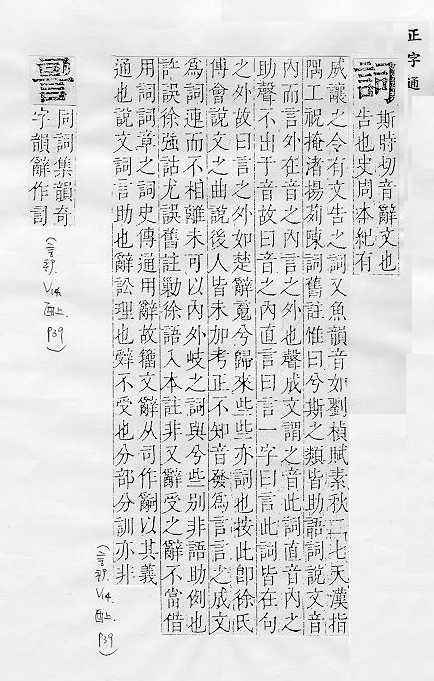 正字通
詞
斯時切音辭文也
告也史周本紀有
威讓之令有文告之詞又魚韻音如劉楨賦素秋二七天漢指
隅工祝掩渚揚荊陳詞舊註惟曰兮斯之類皆助語詞說文音
內而言外在音之內言之外也聲成文謂之音此詞直音內之
助聲不出于音故曰音之內直言曰言一字曰言此詞皆在句
之外故曰言之外如楚辭䰟兮歸來些些亦詞也按此卽徐氏
傅會說文之曲說後人皆未加考正不知音發爲言言之成文
爲詞連而不相離未可以內外歧之詞與兮些別非語助例也
許誤徐強詁尤誤舊註勦徐語入本註非又辭受之辭不當借
用詞詞章之詞史傳通用辭故籀文辭从司作嗣以其義
通也說文詞言助也辭訟理也辤不受也分部分訓亦非
(言部. V14. 酉上. P39)
同詞集韻奇
字韻辭作㔃
(言部. V14. 酉上. P39)